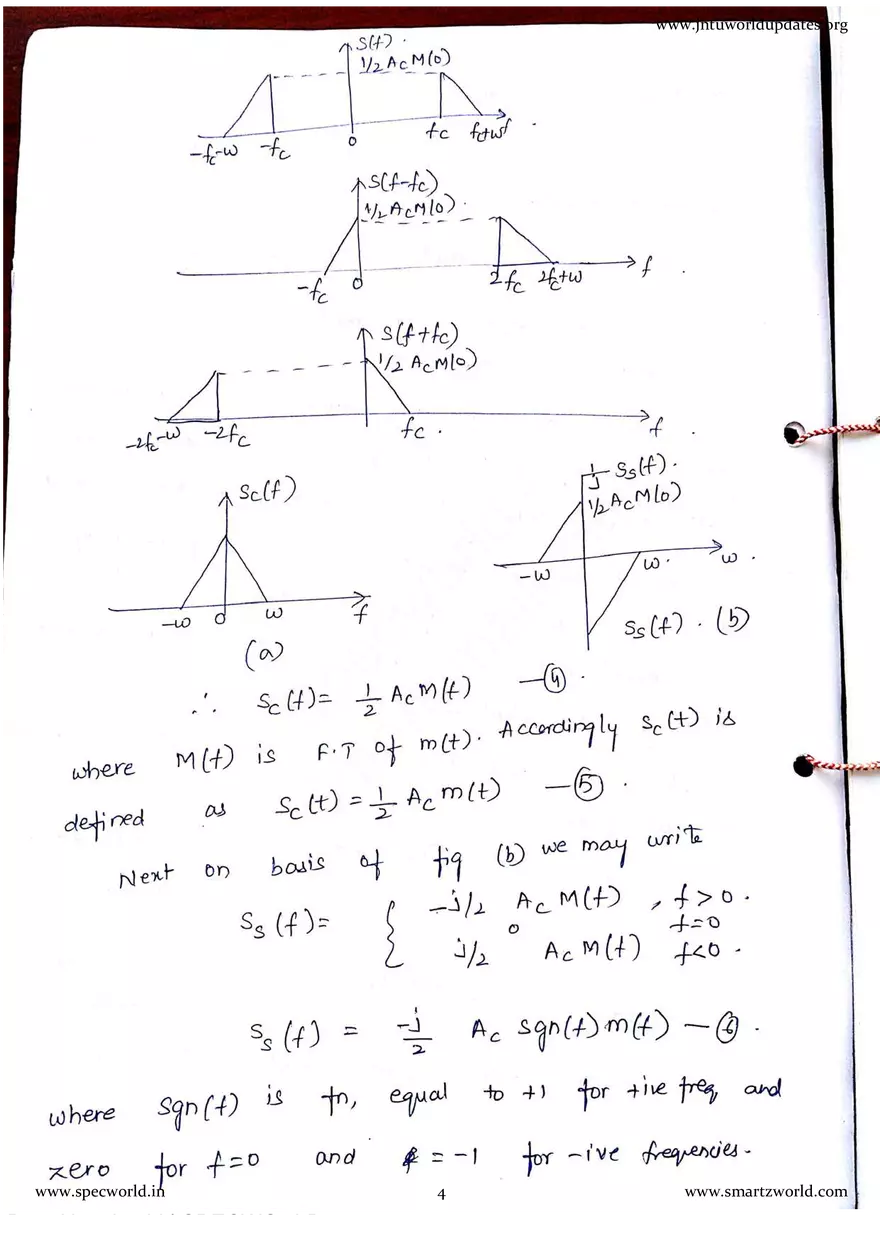 www.jntuworldupdates.org
S(f).
1/2 Ac M(0)
-fc-w -fc 0 fc fc+w f
S(f-fc)
1/2 Ac M(0).
-fc 0 2fc 2fc+w f
S(f+fc)
1/2 Ac M(0)
-2fc-w -2fc fc f
Sc(f)
-w 0 w f
(a)
1/j Ss(f).
1/2 Ac M(0)
-w w. w.
Ss(f). (b)
∴ Sc(f) = 1/2 Ac M(f) —④.
where M(f) is F.T of m(t). Accordingly Sc(t) is
defined as Sc(t) = 1/2 Ac m(t) —⑤.
Next on basis of fig (b) we may write
Ss(f) = { -j/2 Ac M(f), f>0.
0 f=0
j/2 Ac M(f) f<0.
Ss(f) = -j/2 Ac sgn(f) m(f) —⑥.
where Sgn(f) is fn, equal to +1 for +ive freq and
zero for f=0 and = -1 for -ive frequencies.
www.specworld.in 4 www.smartzworld.com